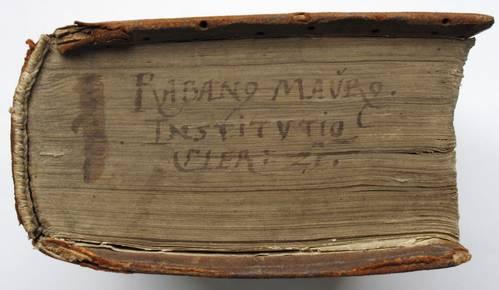 RABANO MAVRO.
INSTITVTIO
CLER: ZĒ.